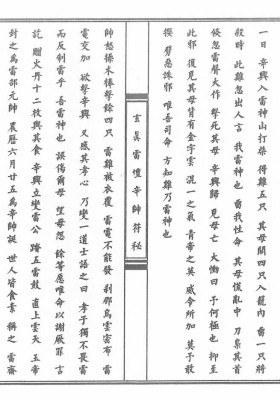 一日辛興入雷神山打柴得雞五只其母閹四只入籠內留一只將
殺時此雞忽出人言我雷神也留我性命其母慌亂中刀梟其首
倏忽雷聲大作擊死其母辛興歸見母亡大慟曰于何極也抑至
此邪復見其母背有金字雲混一之氣青帝之英威令所加莫予敢
攖勞惡誅邪唯吾司命方知雞乃雷神也
玄真雷壇辛帥符秘
帥怒操木棒擊餘四只雷雞被衣覆雷電不能發剎那烏雲密布雷
電交加欲擊辛興又感其孝心乃變一道士語之曰孝子獨不畏雷
而反制雷乎吾雷神也誤傷爾母望母怨餘等愿唯命以謝厥罪言
訖贈火丹十二枚與其食辛興立變雷公踏五雷鼓直上雲天玉帝
封之為雷部元帥農曆六月廿五為辛帥誕世人皆食素稱之雷齋